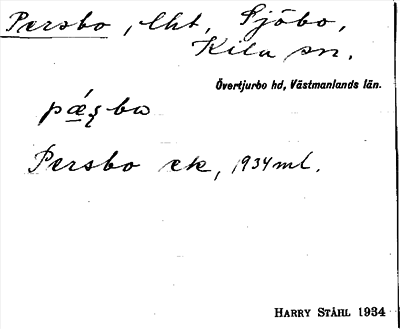 Persbo, lht, Sjöbo,
Kila sn.
Övertjurbo hd, Västmanlands län.
pǽʂbo
Persbo ek, 1934 ml.
HARRY STÅHL 1934